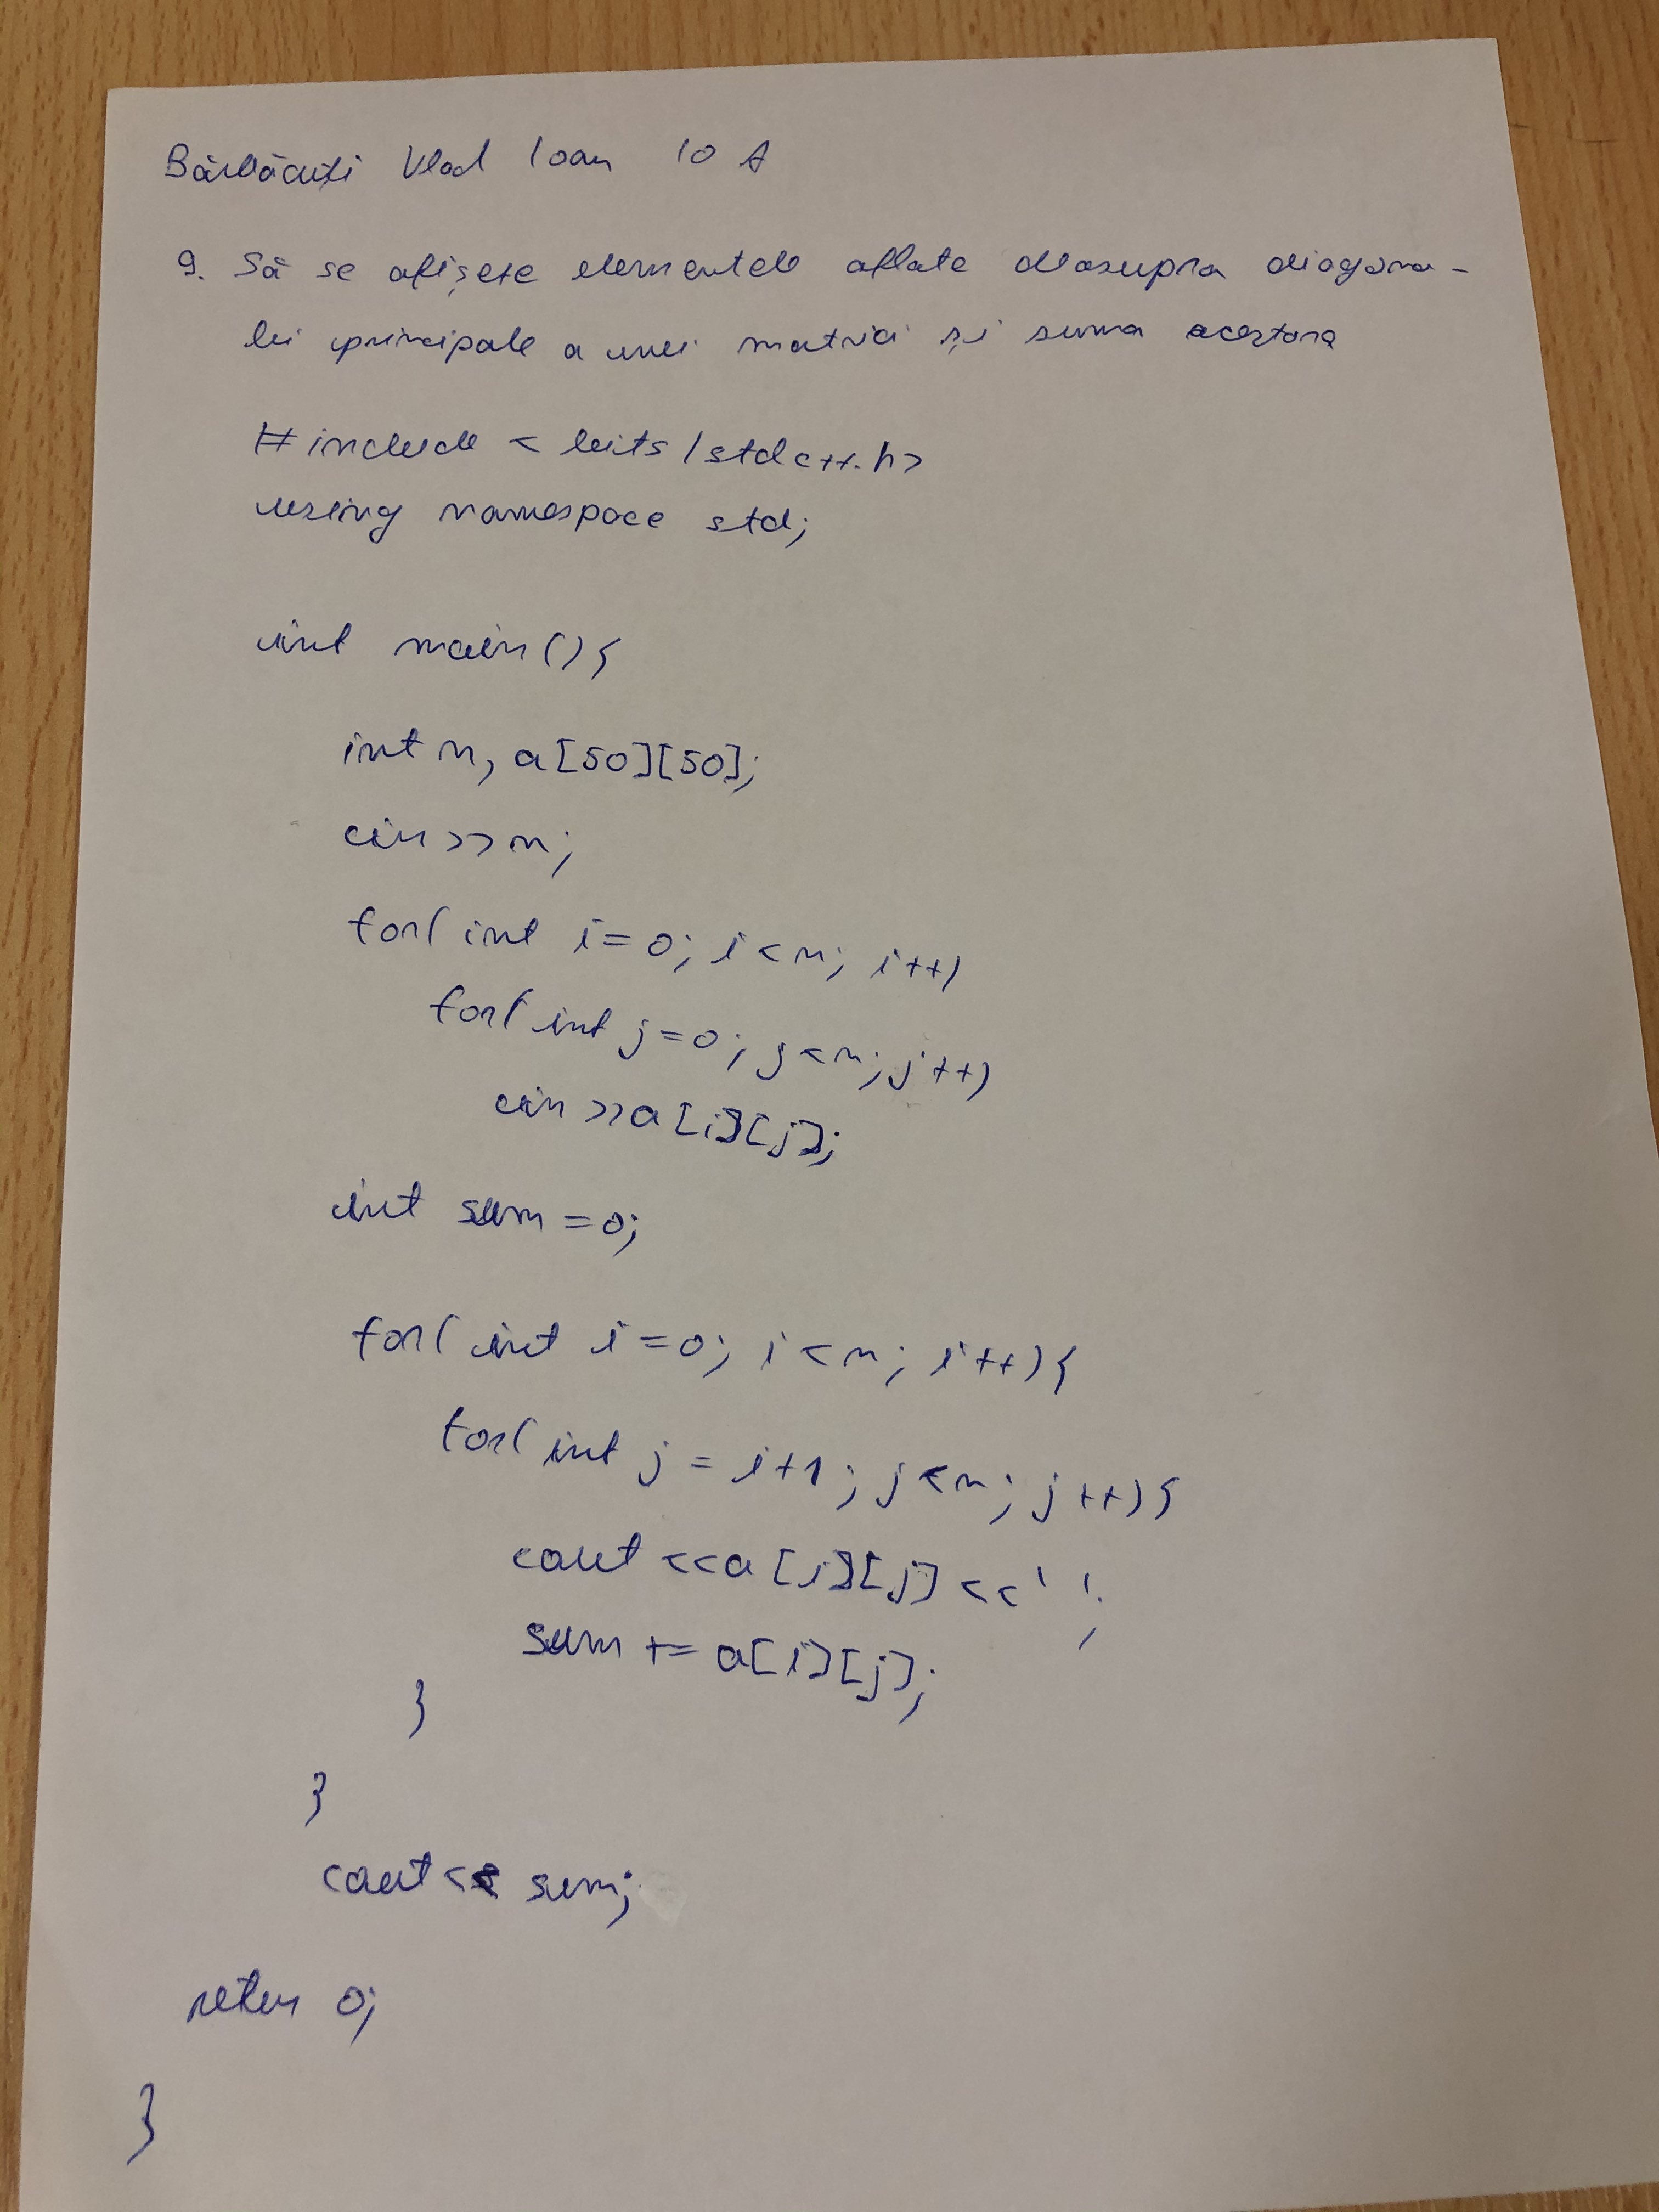 Bărbăcuți Vlad Ioan 10 A
9. Să se afișeze elementele aflate deasupra diagona-
lei principale a unei matrici și suma acestora
#include <bits/stdc++.h>
using namespace std;
int main(){
int n, a[50][50];
cin>>n;
for(int i=0; i<n; i++)
for(int j=0; j<n; j++)
cin>>a[i][j];
int sum=0;
for(int i=0; i<n; i++){
for(int j=i+1; j<n; j++){
cout<<a[i][j]<<' ';
sum += a[i][j];
}
}
cout<< sum;
return 0;
}